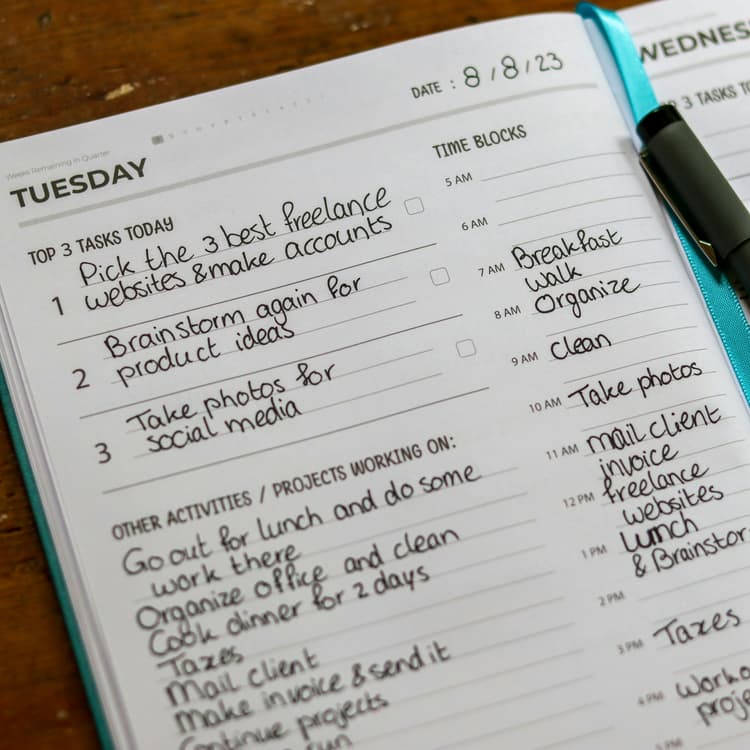 Weeks Remaining in Quarter
TUESDAY
DATE : 8 / 8 / 23
TOP 3 TASKS TODAY
1 Pick the 3 best freelance
websites & make accounts
2 Brainstorm again for
product ideas
3 Take photos for
social media
OTHER ACTIVITIES / PROJECTS WORKING ON:
Go out for lunch and do some
work there
Organize office and clean
Cook dinner for 2 days
Taxes
Mail client
Make invoice & send it
Continue projects
run
TIME BLOCKS
5 AM
6 AM
7 AM Breakfast
Walk
8 AM Organize
9 AM Clean
10 AM Take photos
11 AM mail client
invoice
12 PM freelance
websites
1 PM Lunch
& Brainstor
2 PM
3 PM Taxes
4 PM Work o
proje
WEDNES
3 TASKS TO